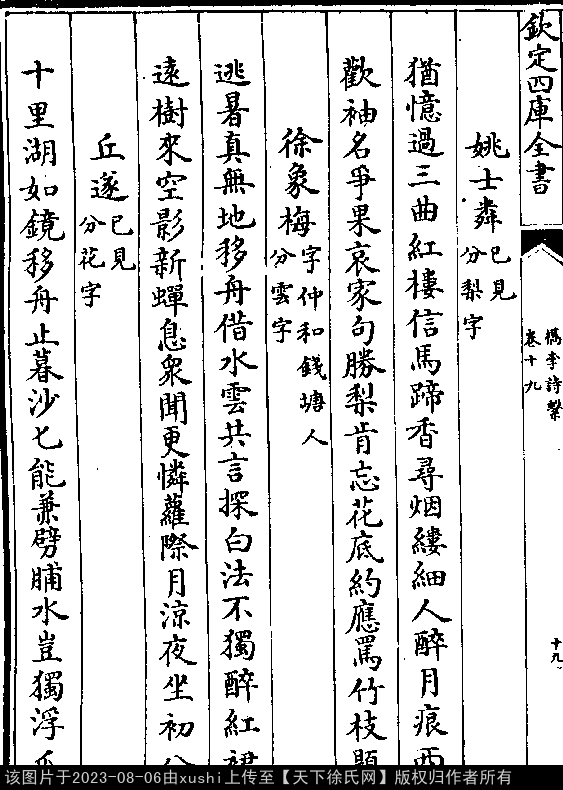 欽定四庫全書
檇李詩繫
卷十九
十九
姚士粦已見
分梨字
猶憶過三曲紅樓信馬蹄香尋烟縷細人醉月痕西
歡袖名爭果哀家句勝梨肯忘花底約應罵竹枝
徐象梅字仲和錢塘人
分雲字
逃暑真無地移舟借水雲共言探白法不獨醉紅裙
遠樹來空影新蟬息衆聞更憐蘿際月涼夜坐初
丘遂已見
分花字
十里湖如鏡移舟止暮沙七能兼劈脯水豈獨浮
该图片于2023-08-06由xushi上传至【天下徐氏网】版权归作者所有